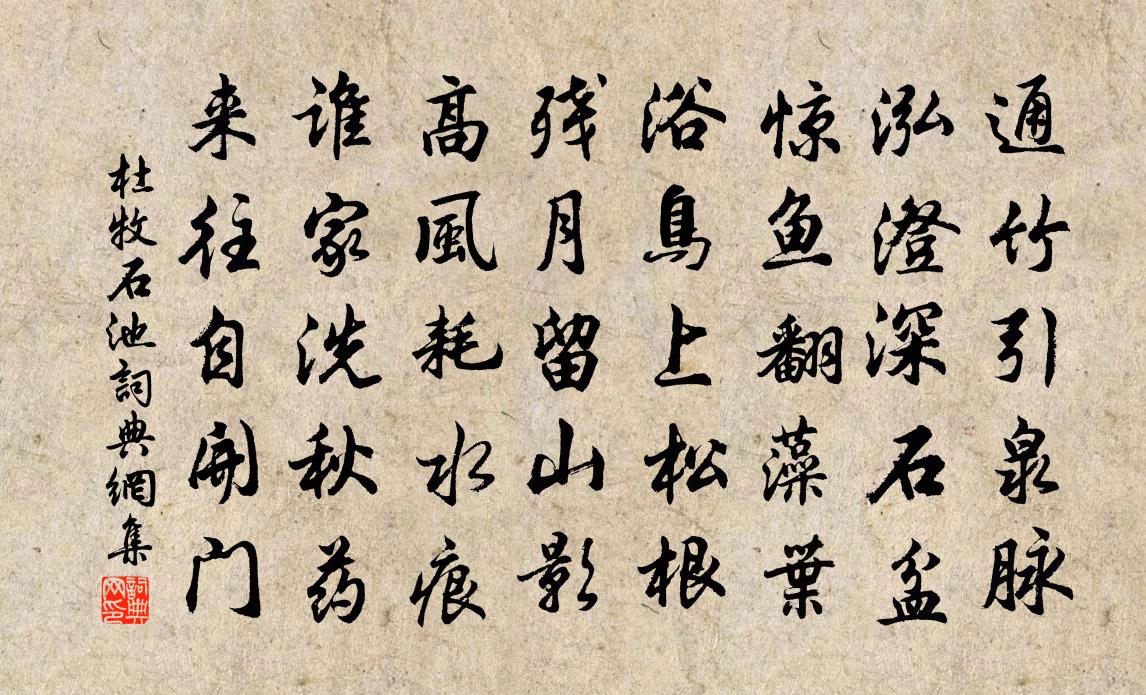 通竹引泉脉
泓澄深石盆
惊鱼翻藻葉
浴鳥上松根
残月留山影
高風耗水痕
谁家洗秋药
来往自開门
杜牧石池詞典網集
詞典网印